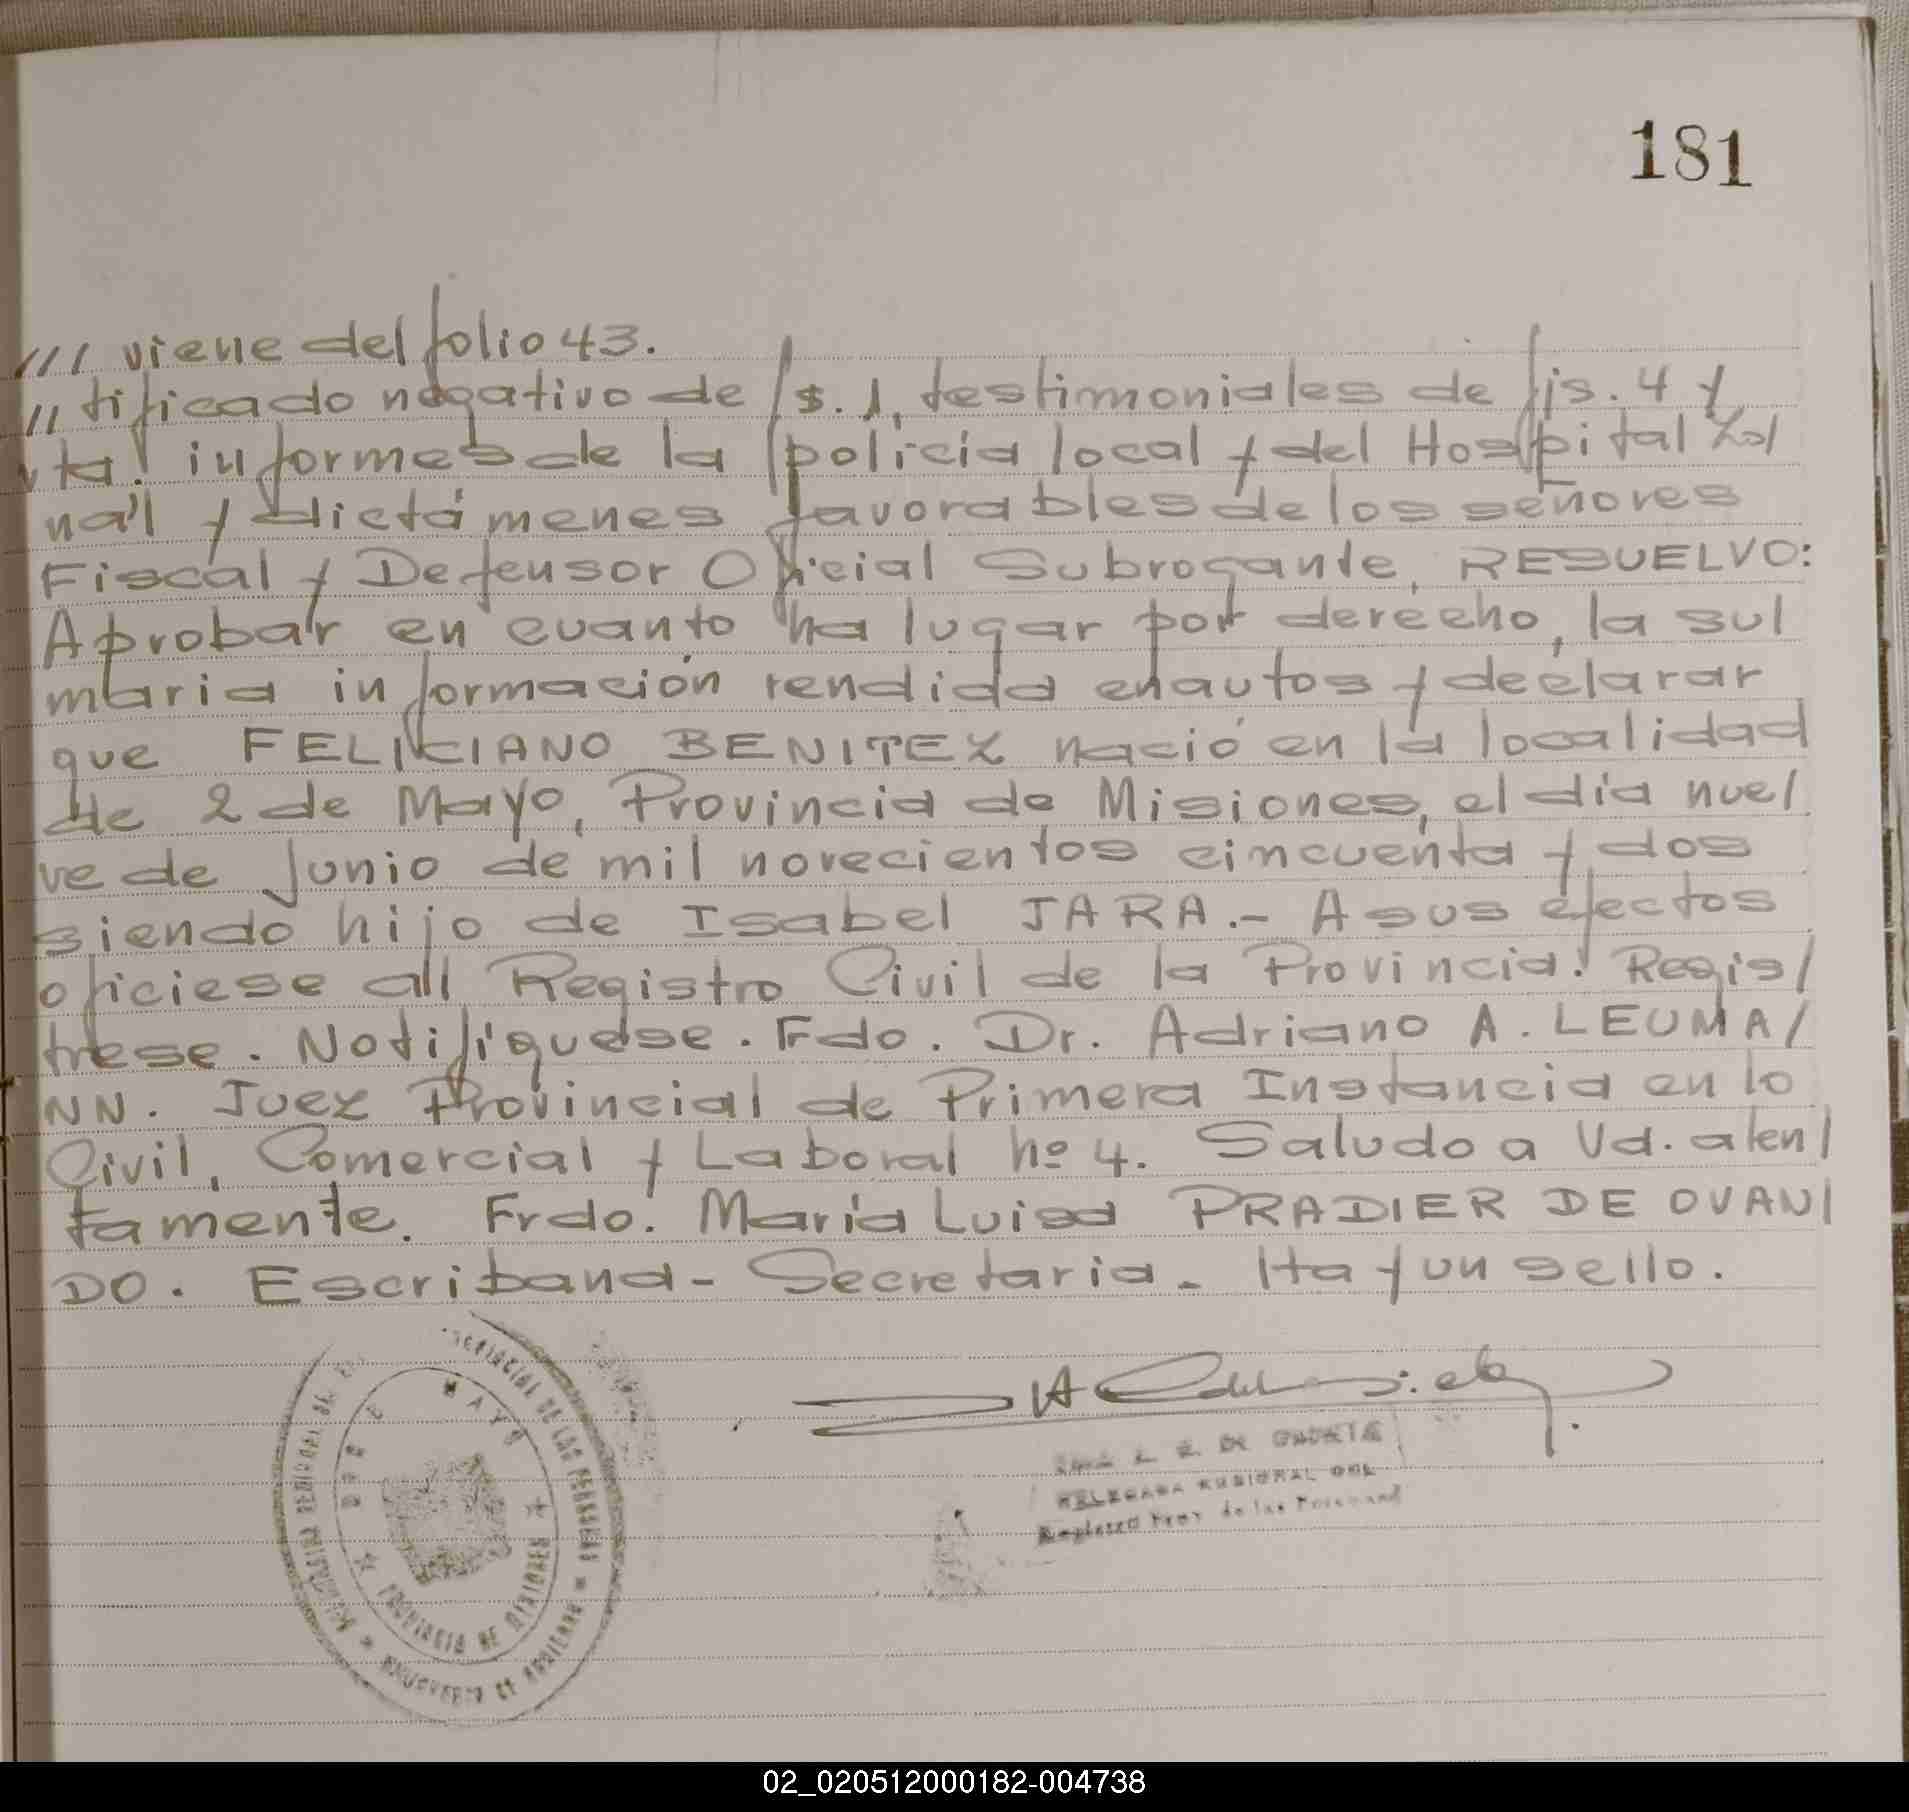 181
/// viene del folio 43.
// tificado negativo de fs. 1, testimoniales de fjs. 4 y
vta. informes de la policia local y del Hospital Zo/
nal y dictámenes favorables de los señores
Fiscal y Defensor Oficial Subrogante, RESUELVO:
Aprobar en cuanto ha lugar por derecho, la su/
maria información rendida en autos y declarar
que FELICIANO BENITEZ nació en la localidad
de 2 de Mayo, Provincia de Misiones, el día nue/
ve de Junio de mil novecientos cincuenta y dos
siendo hijo de Isabel JARA.- A sus efectos
ofíciese all Registro Civil de la Provincia. Regis/
trese. Notifíquese. Fdo. Dr. Adriano A. LEUMA/
NN. Juez Provincial de Primera Instancia en lo
Civil, Comercial y Laboral nº 4. Saludo a Ud. aten/
tamente. Frdo. María Luisa PRADIER DE OVAN/
DO. Escribana - Secretaria - Hay un sello.
MAYO
PROVINCIA DE MISIONES
DE LAS PERSONAS
DELEGADA REGIONAL DEL
de las Personas
02_020512000182-004738